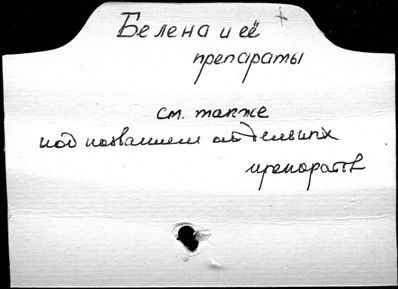 Белена и её
препараты
см. также
под названием отдельных
препаратов